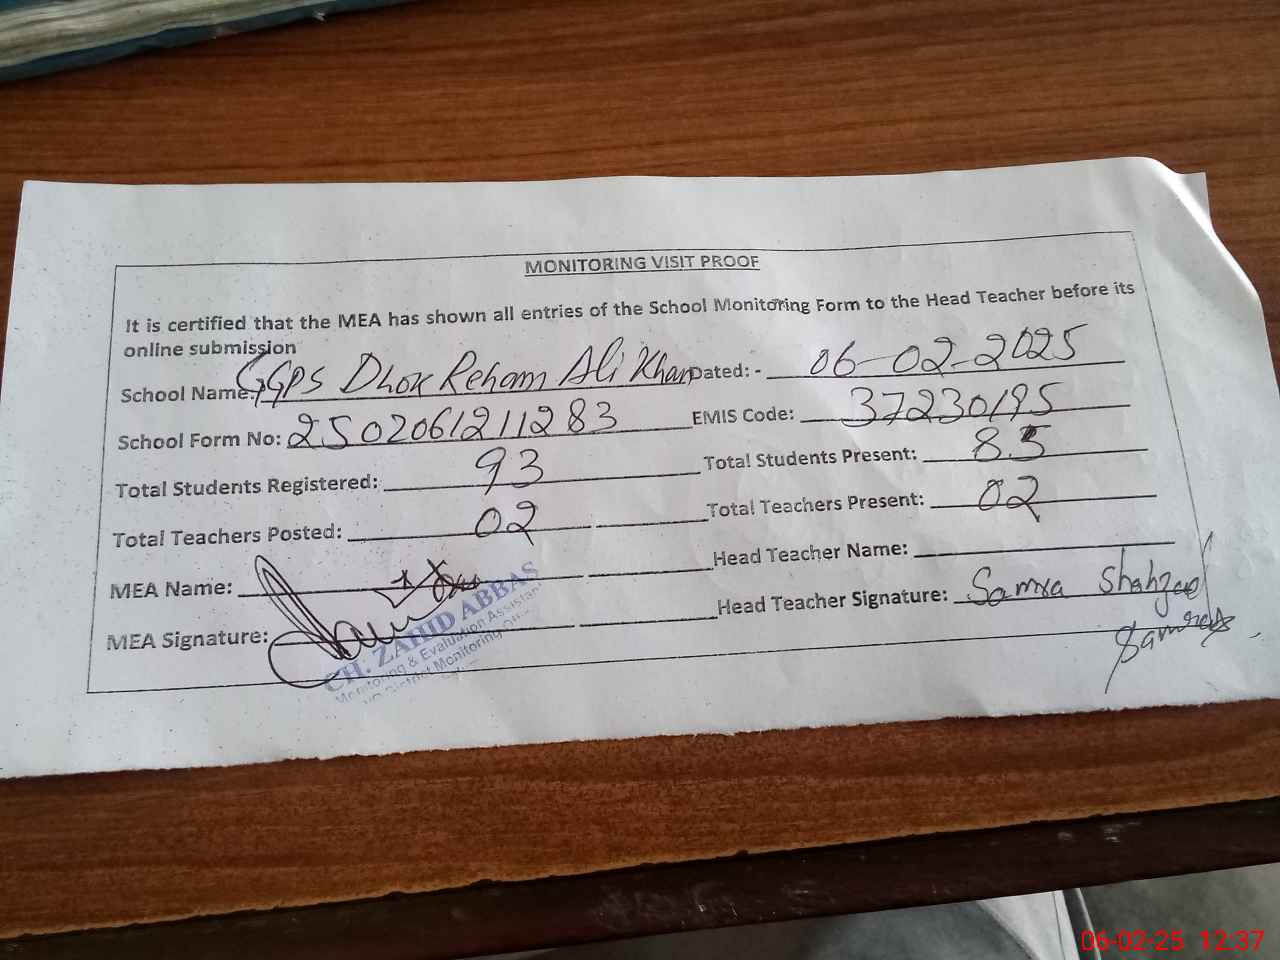 MONITORING VISIT PROOF
It is certified that the MEA has shown all entries of the School Monitoring Form to the Head Teacher before its
online submission
School Name: GGPS Dhok Reham Ali Khan Dated: - 06-02-2025
School Form No: 250206121 1283 EMIS Code: 37230195
Total Students Registered: 93 Total Students Present: 85
Total Teachers Posted: 02 Total Teachers Present: 02
MEA Name: Head Teacher Name:
MEA Signature: Head Teacher Signature: Samra Shahzad
CH. ZAHID ABBAS
Monitoring & Evaluation Assistant
District Monitoring
06-02-25 12:37